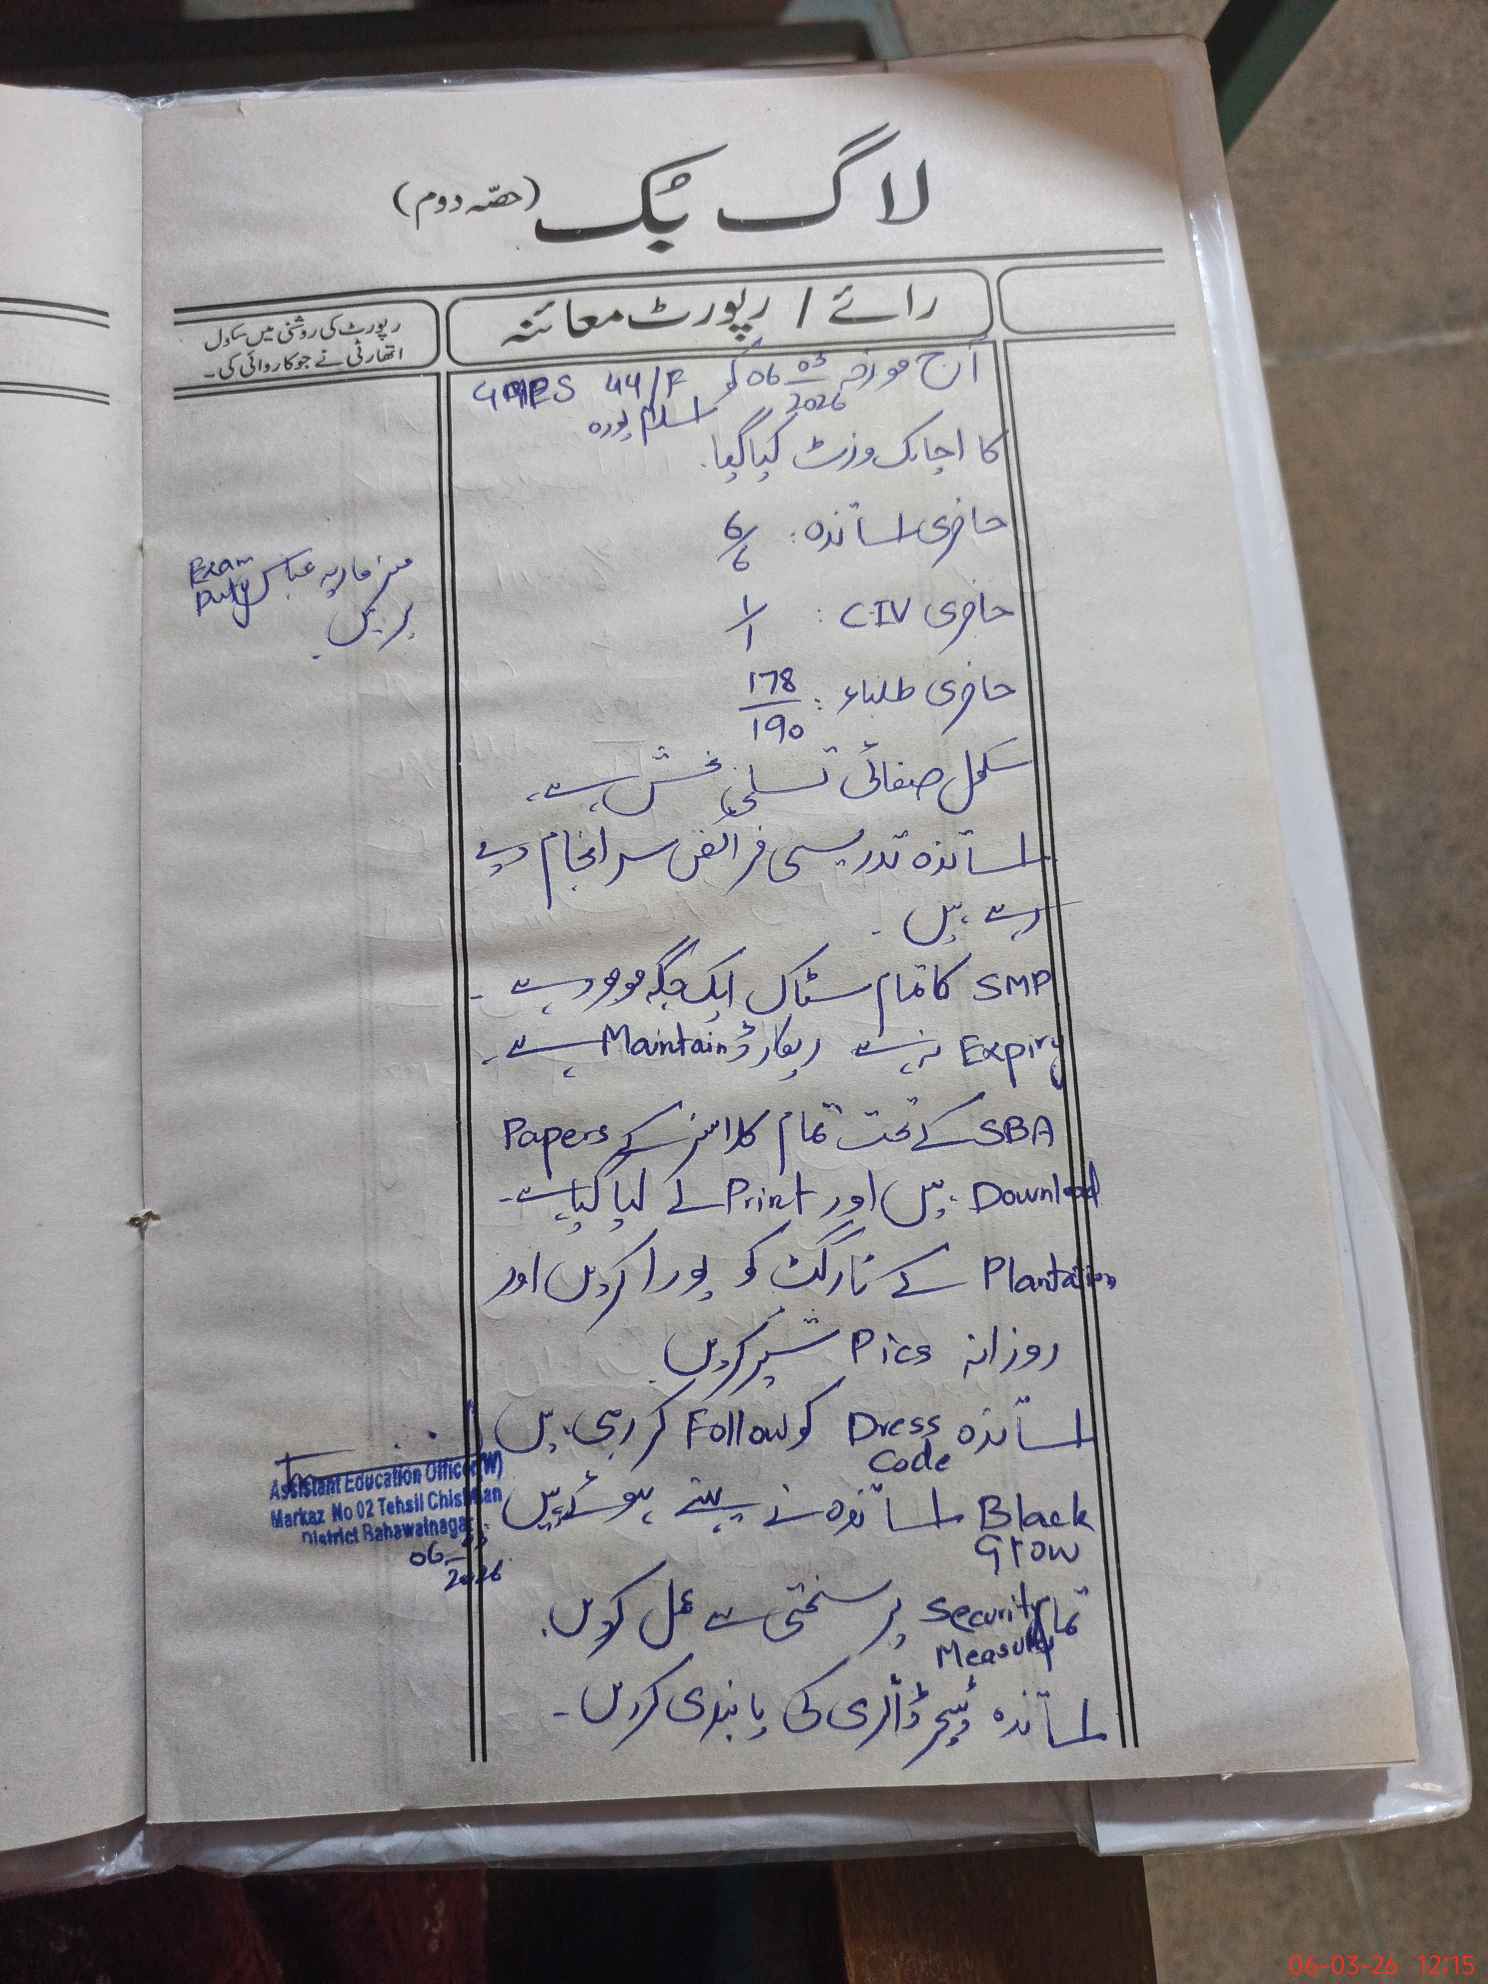 لاگ بُک (حصّہ دوم)
رائے / رپورٹ معائنہ
رپورٹ کی روشنی میں سکول
اتھارٹی نے جو کاروائی کی۔
آج مورخہ 06-03-2026 کو GMPS 44/F
اسلام پورہ
کا اچانک وزٹ کیا گیا۔
حاضری اساتذہ: 6/6
حاضری C-IV: 1/1
حاضری طلباء: 178/190
سکول صفائی تسلی بخش ہے۔
اساتذہ تدریسی فرائض سر انجام دے
رہے ہیں۔
SMP کا تمام سٹاک ایک جگہ موجود ہے۔
Expiry نہ ہے ریکارڈ Maintain ہے۔
SBA کے تحت تمام کلاسز کے Papers
Download ہیں اور Print لے لیا گیا ہے۔
Plantation کے ٹارگٹ کو پورا کریں اور
روزانہ Pics شیئر کریں
اساتذہ Dress Code کو Follow کر رہی ہیں
Black Grow اساتذہ نے پہنے ہوئے ہیں
تمام Security Measures پر سختی سے عمل کریں۔
اساتذہ ٹیچر ڈائری کی پابندی کریں۔
مسز ماریہ عباس Exam Duty
پر ہیں۔
Assistant Education Officer (W)
Markaz No 02 Tehsil Chishtian
District Bahawalnagar
06-03-2026
06-03-26 12:15